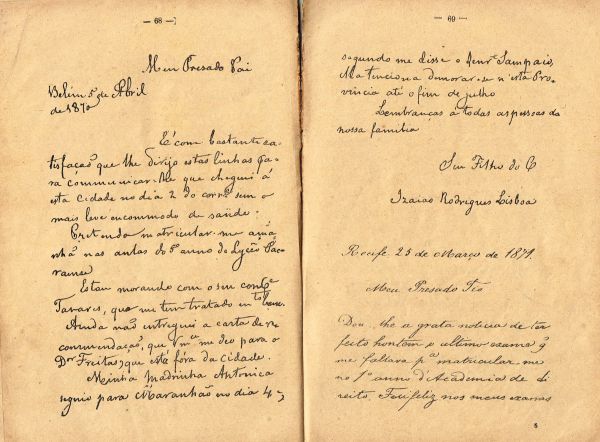 — 68 —
Meu Presado Pai
Belém 5 de Abril
de 1870
É com bastante sa-
tisfação que lhe dirijo estas linhas pa-
ra communicar-lhe que cheguei á
esta cidade no dia 2 do corrᵉ sem o
mais leve encommodo de saude.
Pretendo matricular-me amá-
nhã nas aulas do 5º anno do Lyceo Pa-
raense
Estou morando com o seu
Tavares, que me tem tratado mᵗᵒ bem.
Ainda não entreguei a carta de re-
commendação, que Vmᶜᵉ me deo para o
Dᵒʳ Freitas, que está fóra da cidade.
Minha Madrinha Antonica
seguio para Maranhão no dia 4,
— 69 —
segundo me disse o Senʳ Sampaio,
Ma tenciona demorar-se n'esta Pro-
vincia até o fim de julho
Lembranças a todas as pessoas da
nossa familia
Seu Filho do C
Izaias Rodrigues Lisboa
Recife 25 de Março de 1871.
Meu Presado Tio
Dou-lhe a grata noticia de ter
feito hontem o ultimo exame q̃
me faltava pᵃ matricular-me
no 1º anno d'Academia de di-
reito. Fui feliz nos meus exames
5